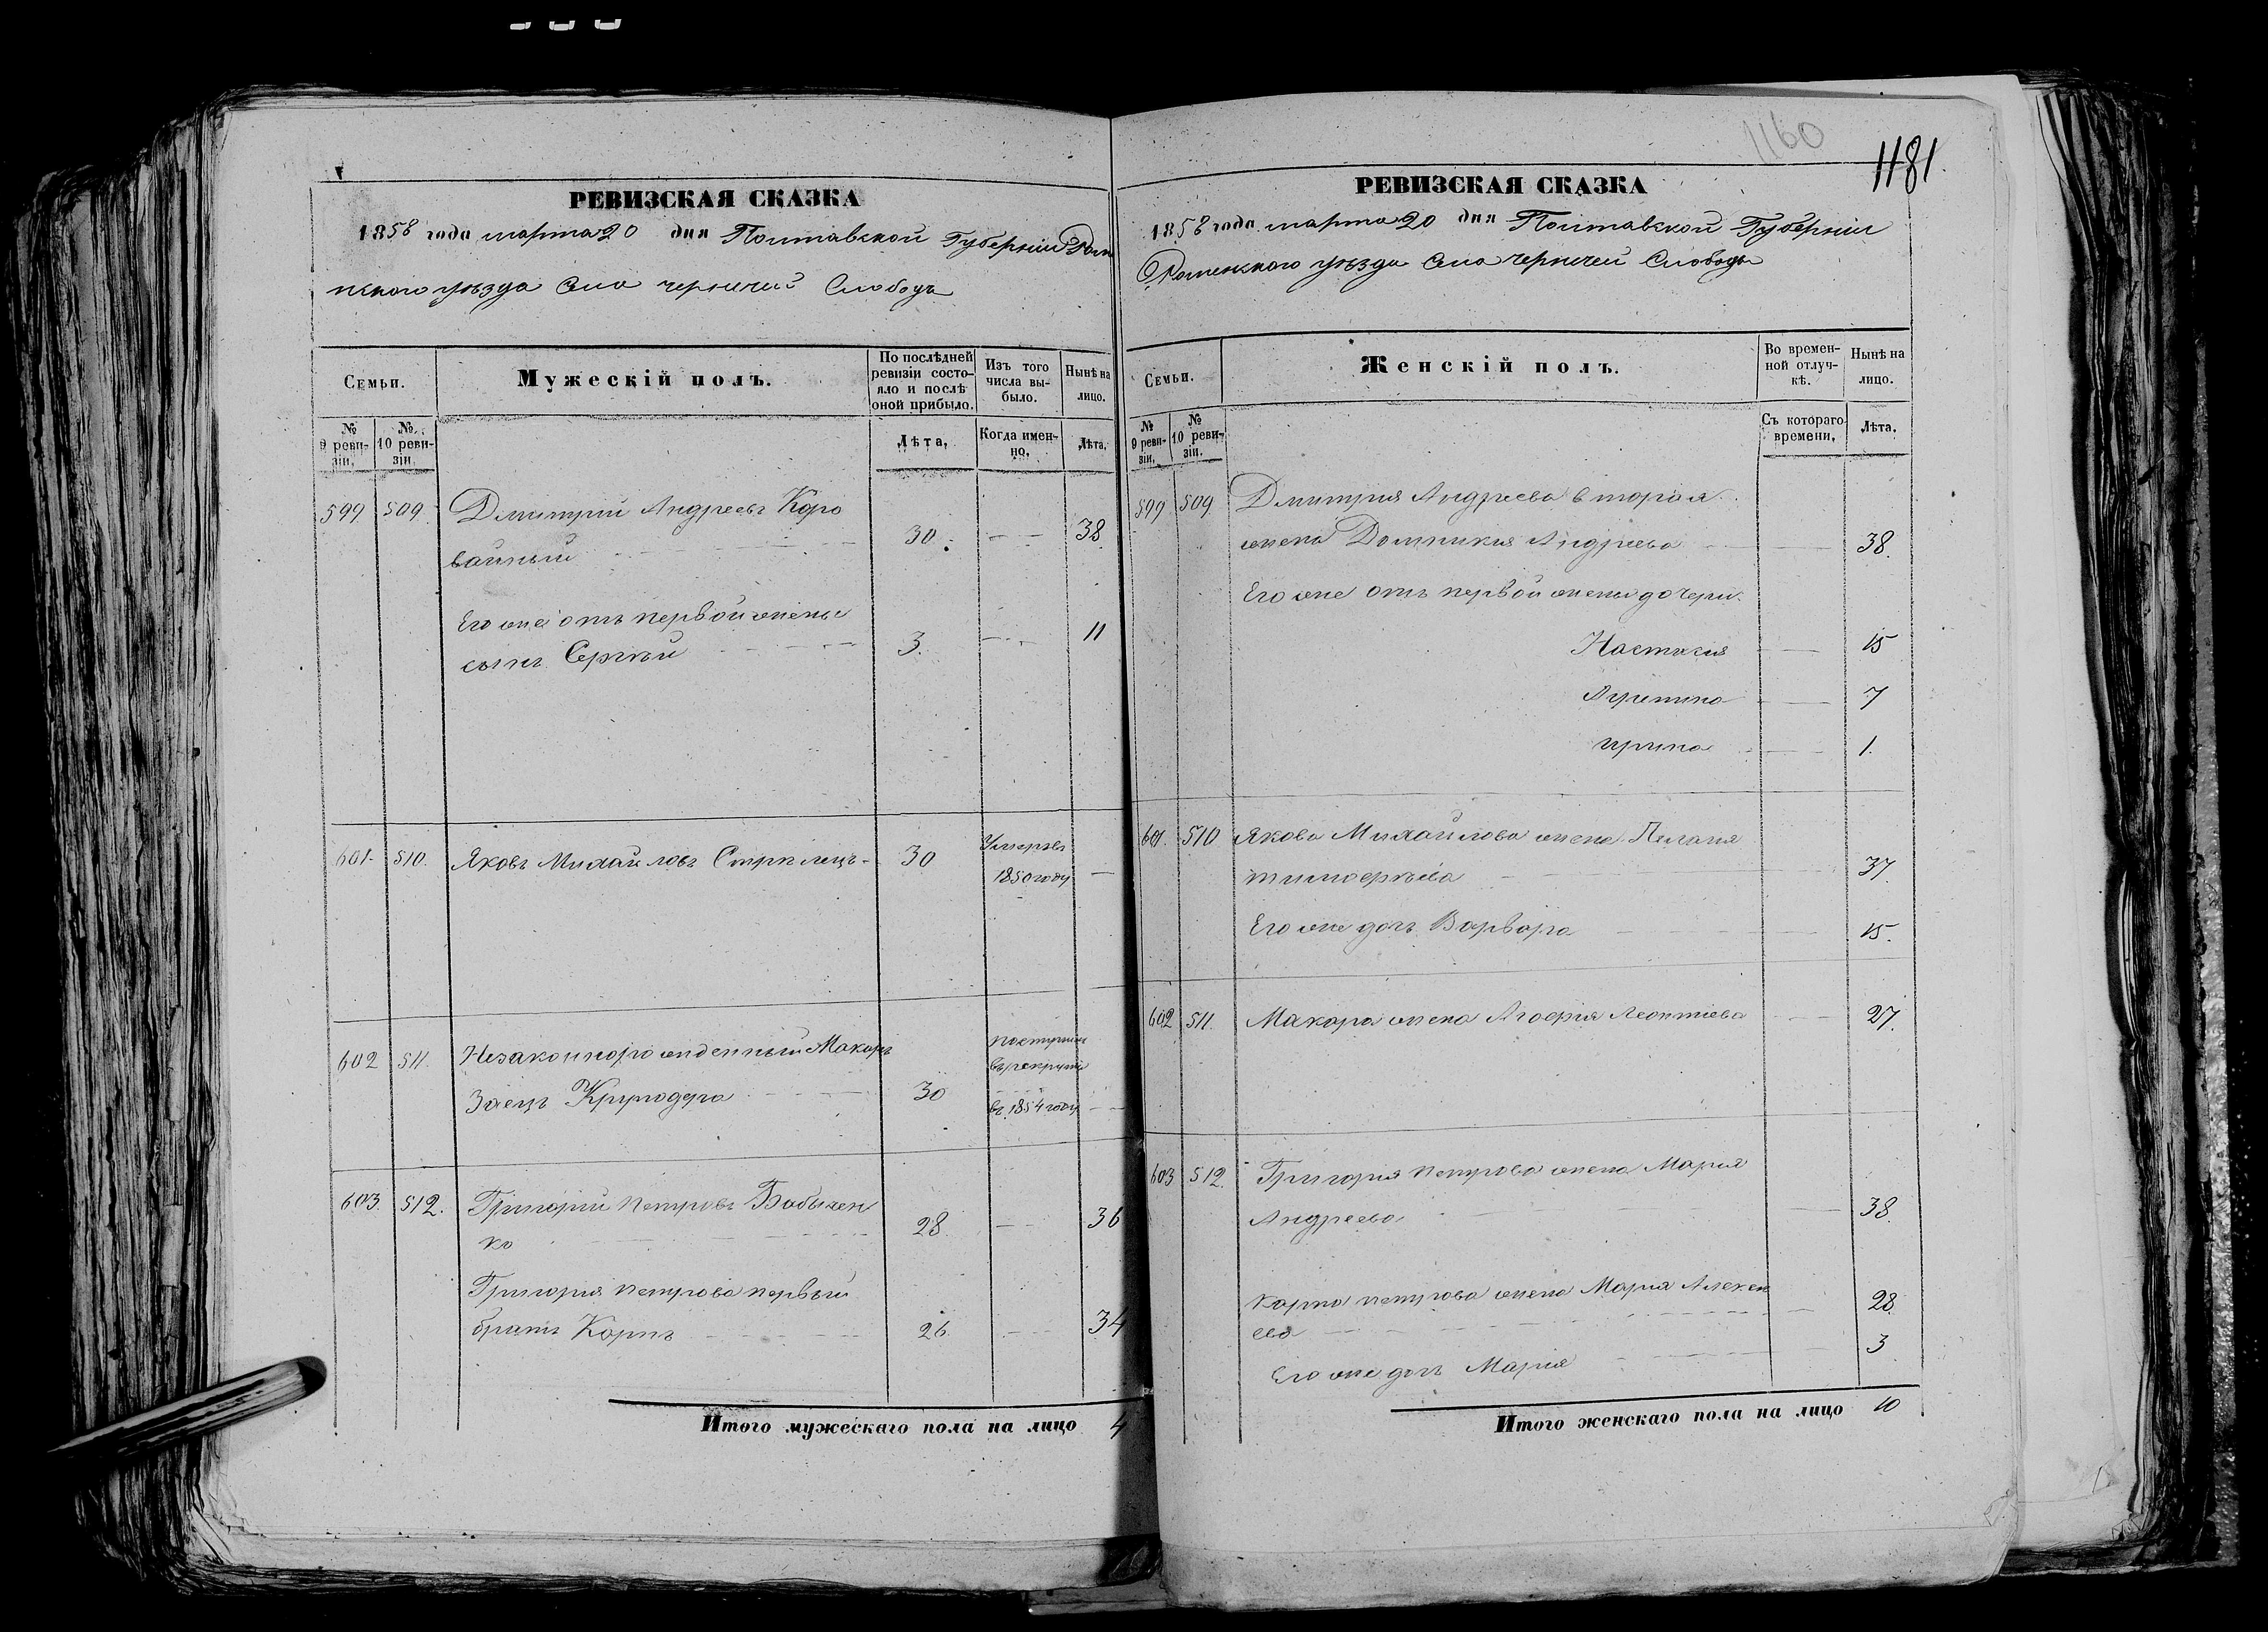 1160
1181.
РЕВИЗСКАЯ СКАЗКА
1858 года марта 20 дня Полтавской Губерніи Роме
нского уѣзда села Чернечей Слободы
Семьи.
Мужескій полъ.
По послѣдней ревизіи состояло и послѣ оной прибыло.
Изъ того числа выбыло.
Нынѣ на лицо.
№ 9 ревизіи.
№ 10 ревизіи.
Лѣта,
Когда именно,
Лѣта.
599 509. Дмитрій Андреевъ Коро
вайный 30. 38.
Его же отъ первой жены
сынъ Сергѣй 3. 11
601. 510. Яковъ Михайловъ Стрилецъ 30 Умеръ въ
1850 году
602 511. Незаконнорожденный Макаръ поступилъ
въ рекруты
Заецъ 30
въ 1854 году
603. 512. Григорій Петровъ Бабычен
ко 28. 36
Григорія Петрова первый
братъ Карпъ 26. 34
Итого мужескаго пола на лицо 4
РЕВИЗСКАЯ СКАЗКА
1858 года марта 20 дня Полтавской Губерніи
Роменского уѣзда села Чернечей Слободы
Семьи.
Женскій полъ.
Во временной отлучкѣ.
Нынѣ на лицо.
№ 9 ревизіи.
№ 10 ревизіи.
Съ котораго времени,
Лѣта.
599 509 Дмитрія Андреева вторая
жена Домникія Андреева 38.
Его же отъ первой жены дочери
Настасия 15
7
Ирина 1.
601. 510 Якова Михайлова жена Пелагия
Тимоѳеѣва 37.
Его же дочь Варвара 15.
602 511. Макара жена Агафия Леонтіева 27.
603 512. Григория Петрова жена Мария
Андреева 38.
Карпа Петрова жена Мария Алексе
ева 28
Его же дочь Мария 3
Итого женскаго пола на лицо 10